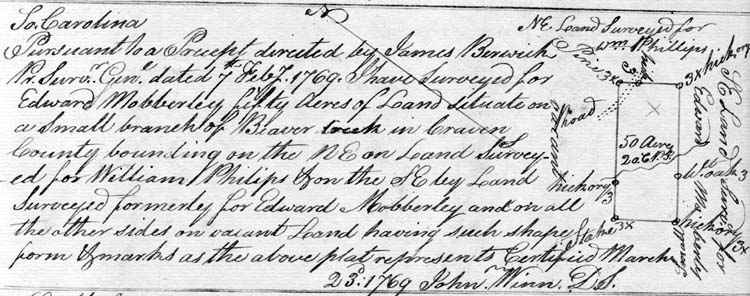 So. Carolina
Pursuant to a Precept directed by James Berwick
Pr. Survr. Genl. dated 7th Feby. 1769. I have Surveyed for
Edward Mobberley fifty Acres of Land Situate on
a Small branch of Beaver Creek in Craven
County bounding on the NE on Land Survey-
ed for William Philips & on the SE by Land
Surveyed formerly for Edward Mobberley and on all
the other sides on vacant Land having such shape
form & marks as the above plat represents Certified March
23d. 1769 John Winn D.S.
NE Land Surveyed for
Wm. Phillips
Pine 3x
3x hickory
Road
vacant
50 Acres
hickory
3
Wt. oak 3
hickory 3x
Stake
3x
vacant
SE Land Survd for
Edward Mobberley